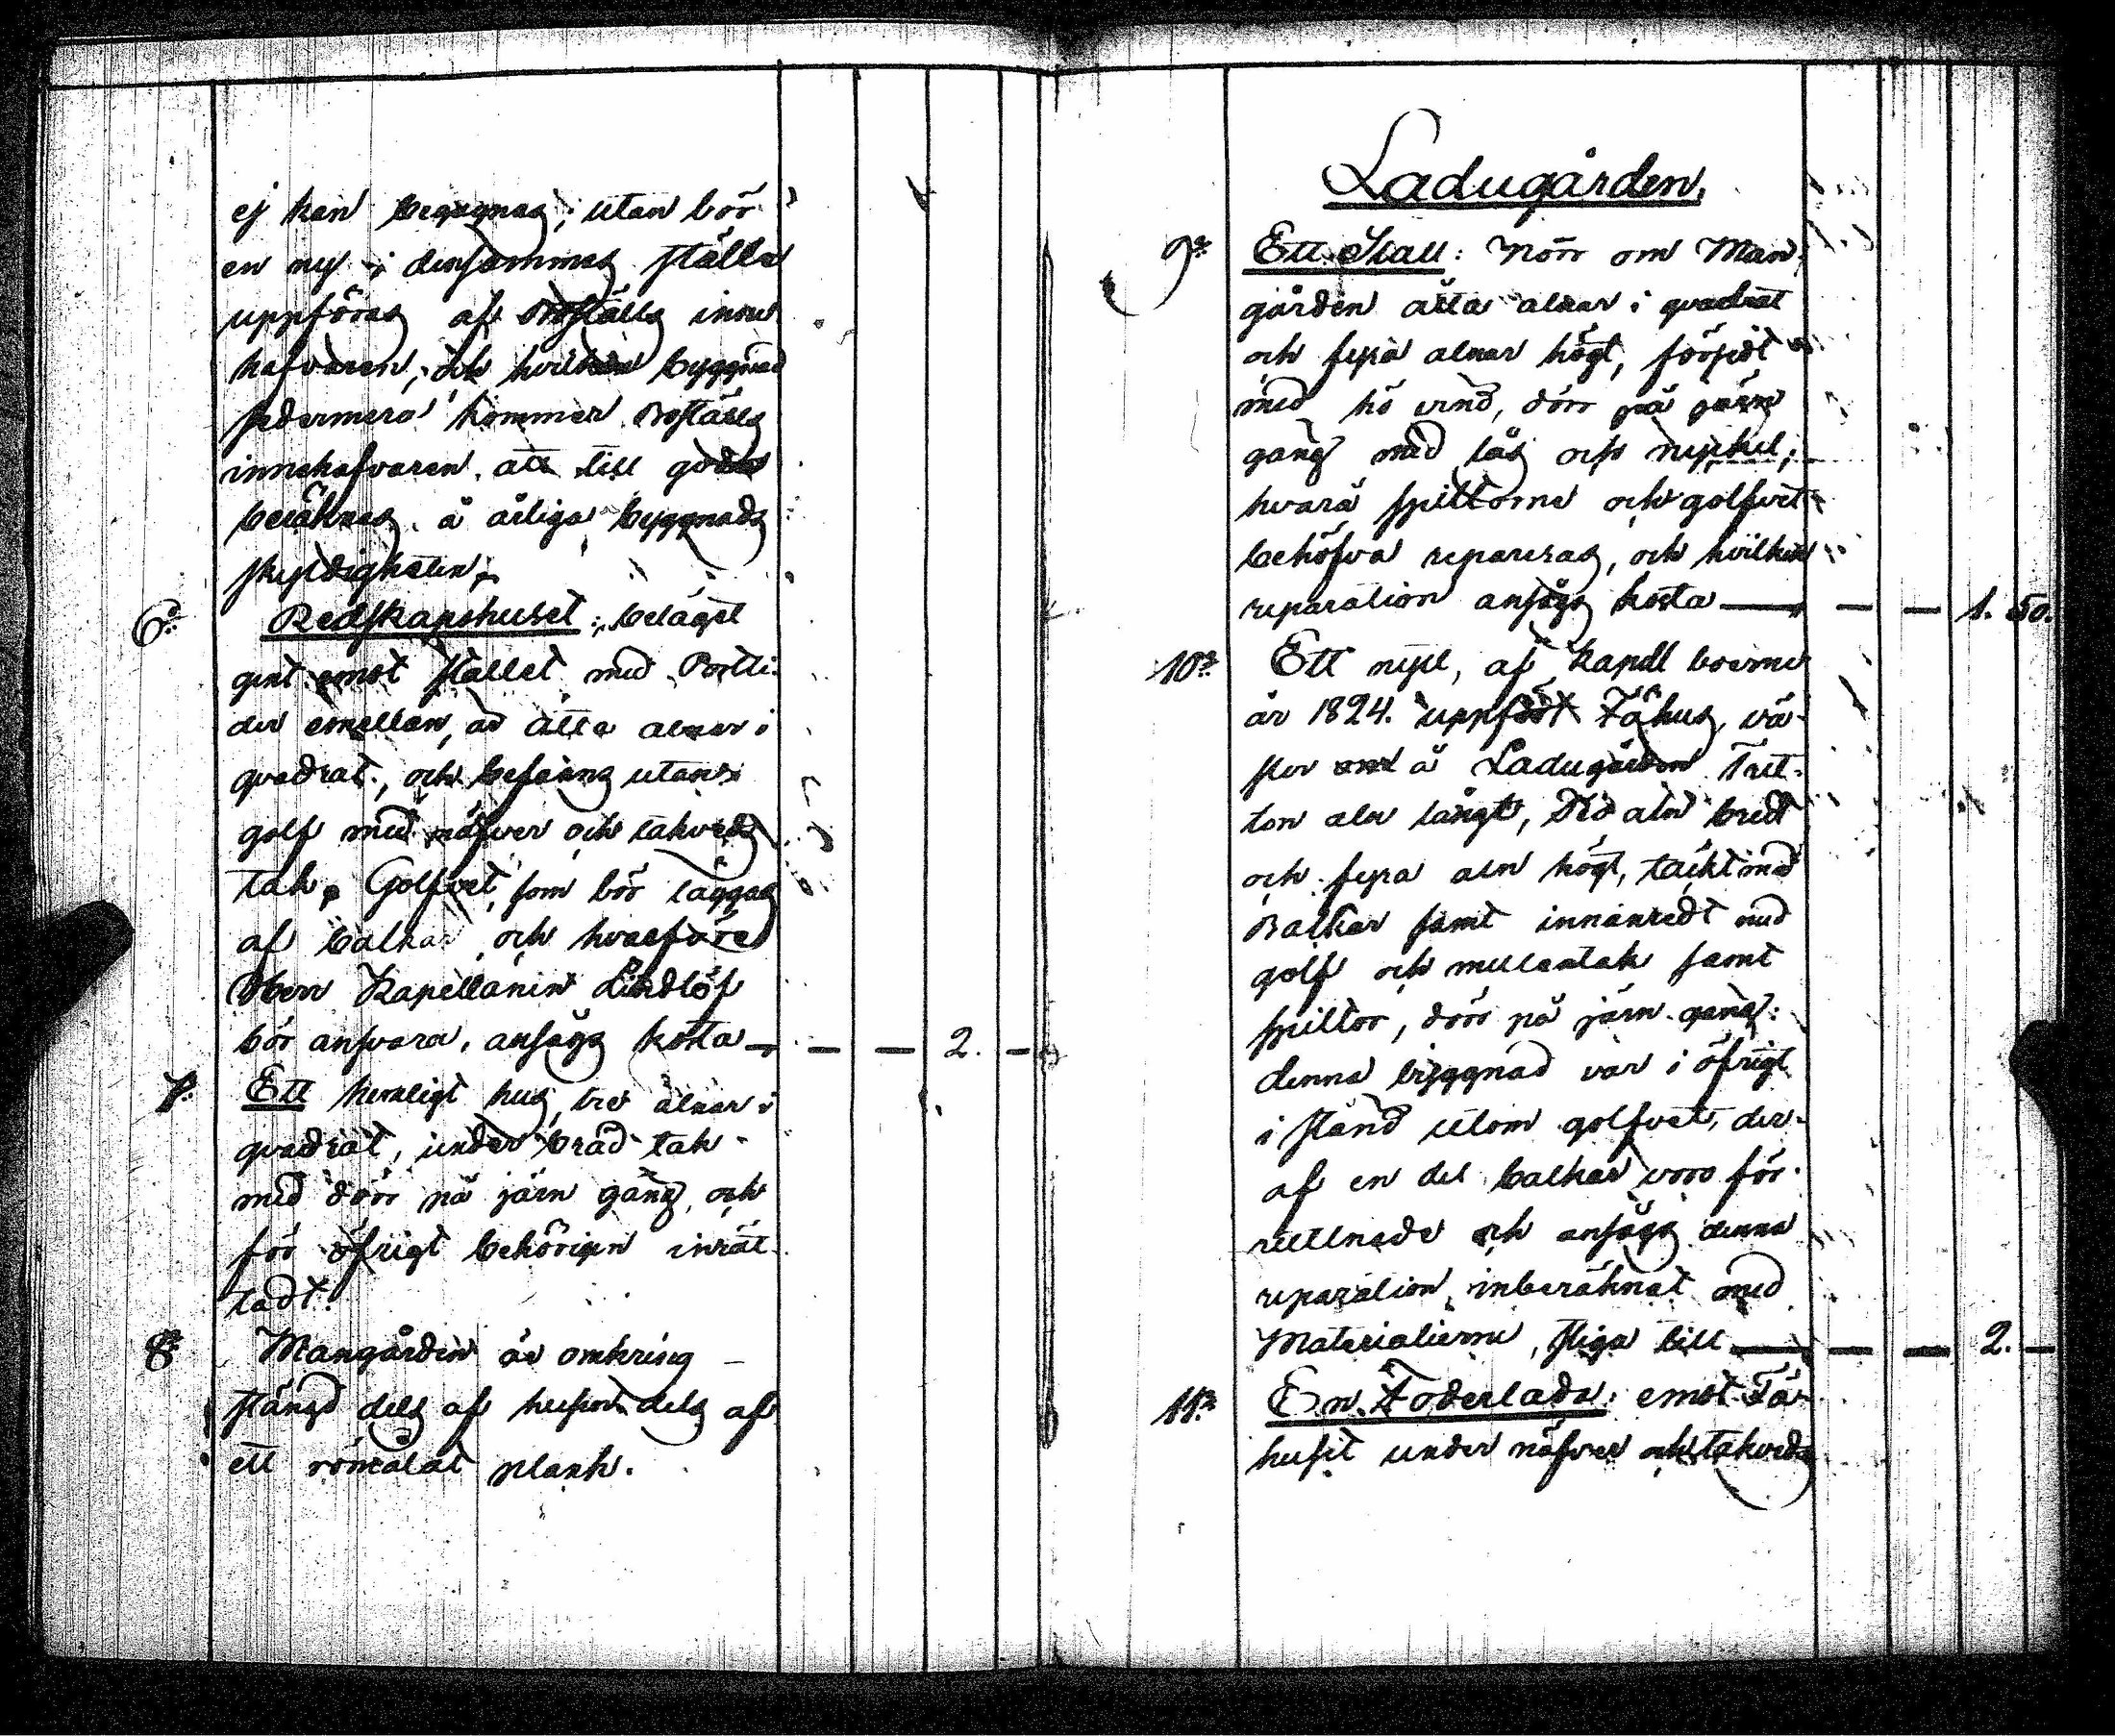 ej kan begagnas; utan bör
en ny i densammas ställe
uppföras af Boställs inne
hafvaren, och hvilken byggnad
sedermera kommer Boställs
innehafvaren att till godo
beräknas å årliga byggnads
skyldigheten.
6o Redskapshuset: beläget
gent emot stallet med Portli-
der emellan, ad åtta alnar i
qvadrat, och befanns utan
golf med näfver och takveds
tak. Golfvet, som bör läggas
af balkar och hvarföre
Herr Kapellanen Lindlöf
bör ansvara, ansågs kosta — — — 2. —
7o Ett hemligt hus, tre alnar i
qvadrat, under bräd tak
med dörr på järn gång, och
för öfrigt behörigen inrät-
tadt.
8o Mangården är omkring
stängd dels af husen dels af
ett römålat plank.
Ladugården.
9o Ett Stall: Norr om Man-
gården åtta alnar i qvadrat
och fyra alnar högt, försedt
med hö vind, dörr på järn
gång med lås och nyckel;
hvarå spiltorne och golfvet
behöfva repareras, och hvilken
reparation ansågs kosta — — — 1. 50.
10o Ett nytt, af Kapell boerne
år 1824. uppfördt Fähus, vä-
ster om å Ladugården Tret-
ton aln långt, Tio aln bredt
och fyra aln högt, täckt med
Balkar samt innanredt med
golf och mullantak samt
spiltor, dörr på järn gång:
denna byggnad var i öfrigt
i stånd utom golfvet, der-
af en del balkar voro för-
ruttnade och ansågs denna
reparation, inberäknat med
Materialierne, stiga till — — — 2. —
11o En Foderlada: emot Fä-
huset under näfver och takveds